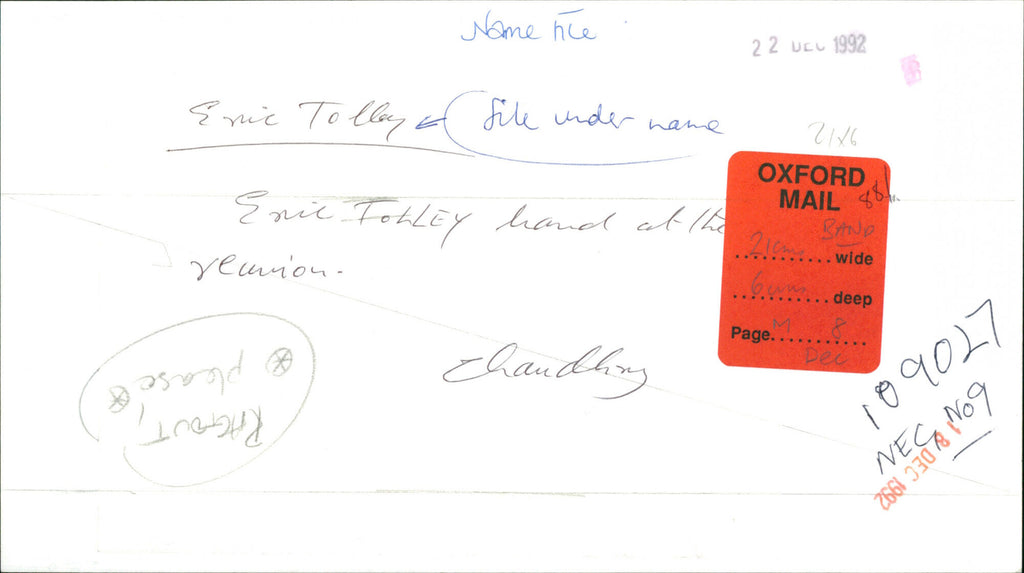 Name file
22 DEC 1992
Eric Tolley ← file under name
21x6
Eric TOLLEY band at the
reunion.
OXFORD
MAIL
88%
BAND
21cms wide
6cms deep
Page M 8
Dec
Chaudhry
RAGOUT,
please
109027
NEG, No9
18 DEC 1992